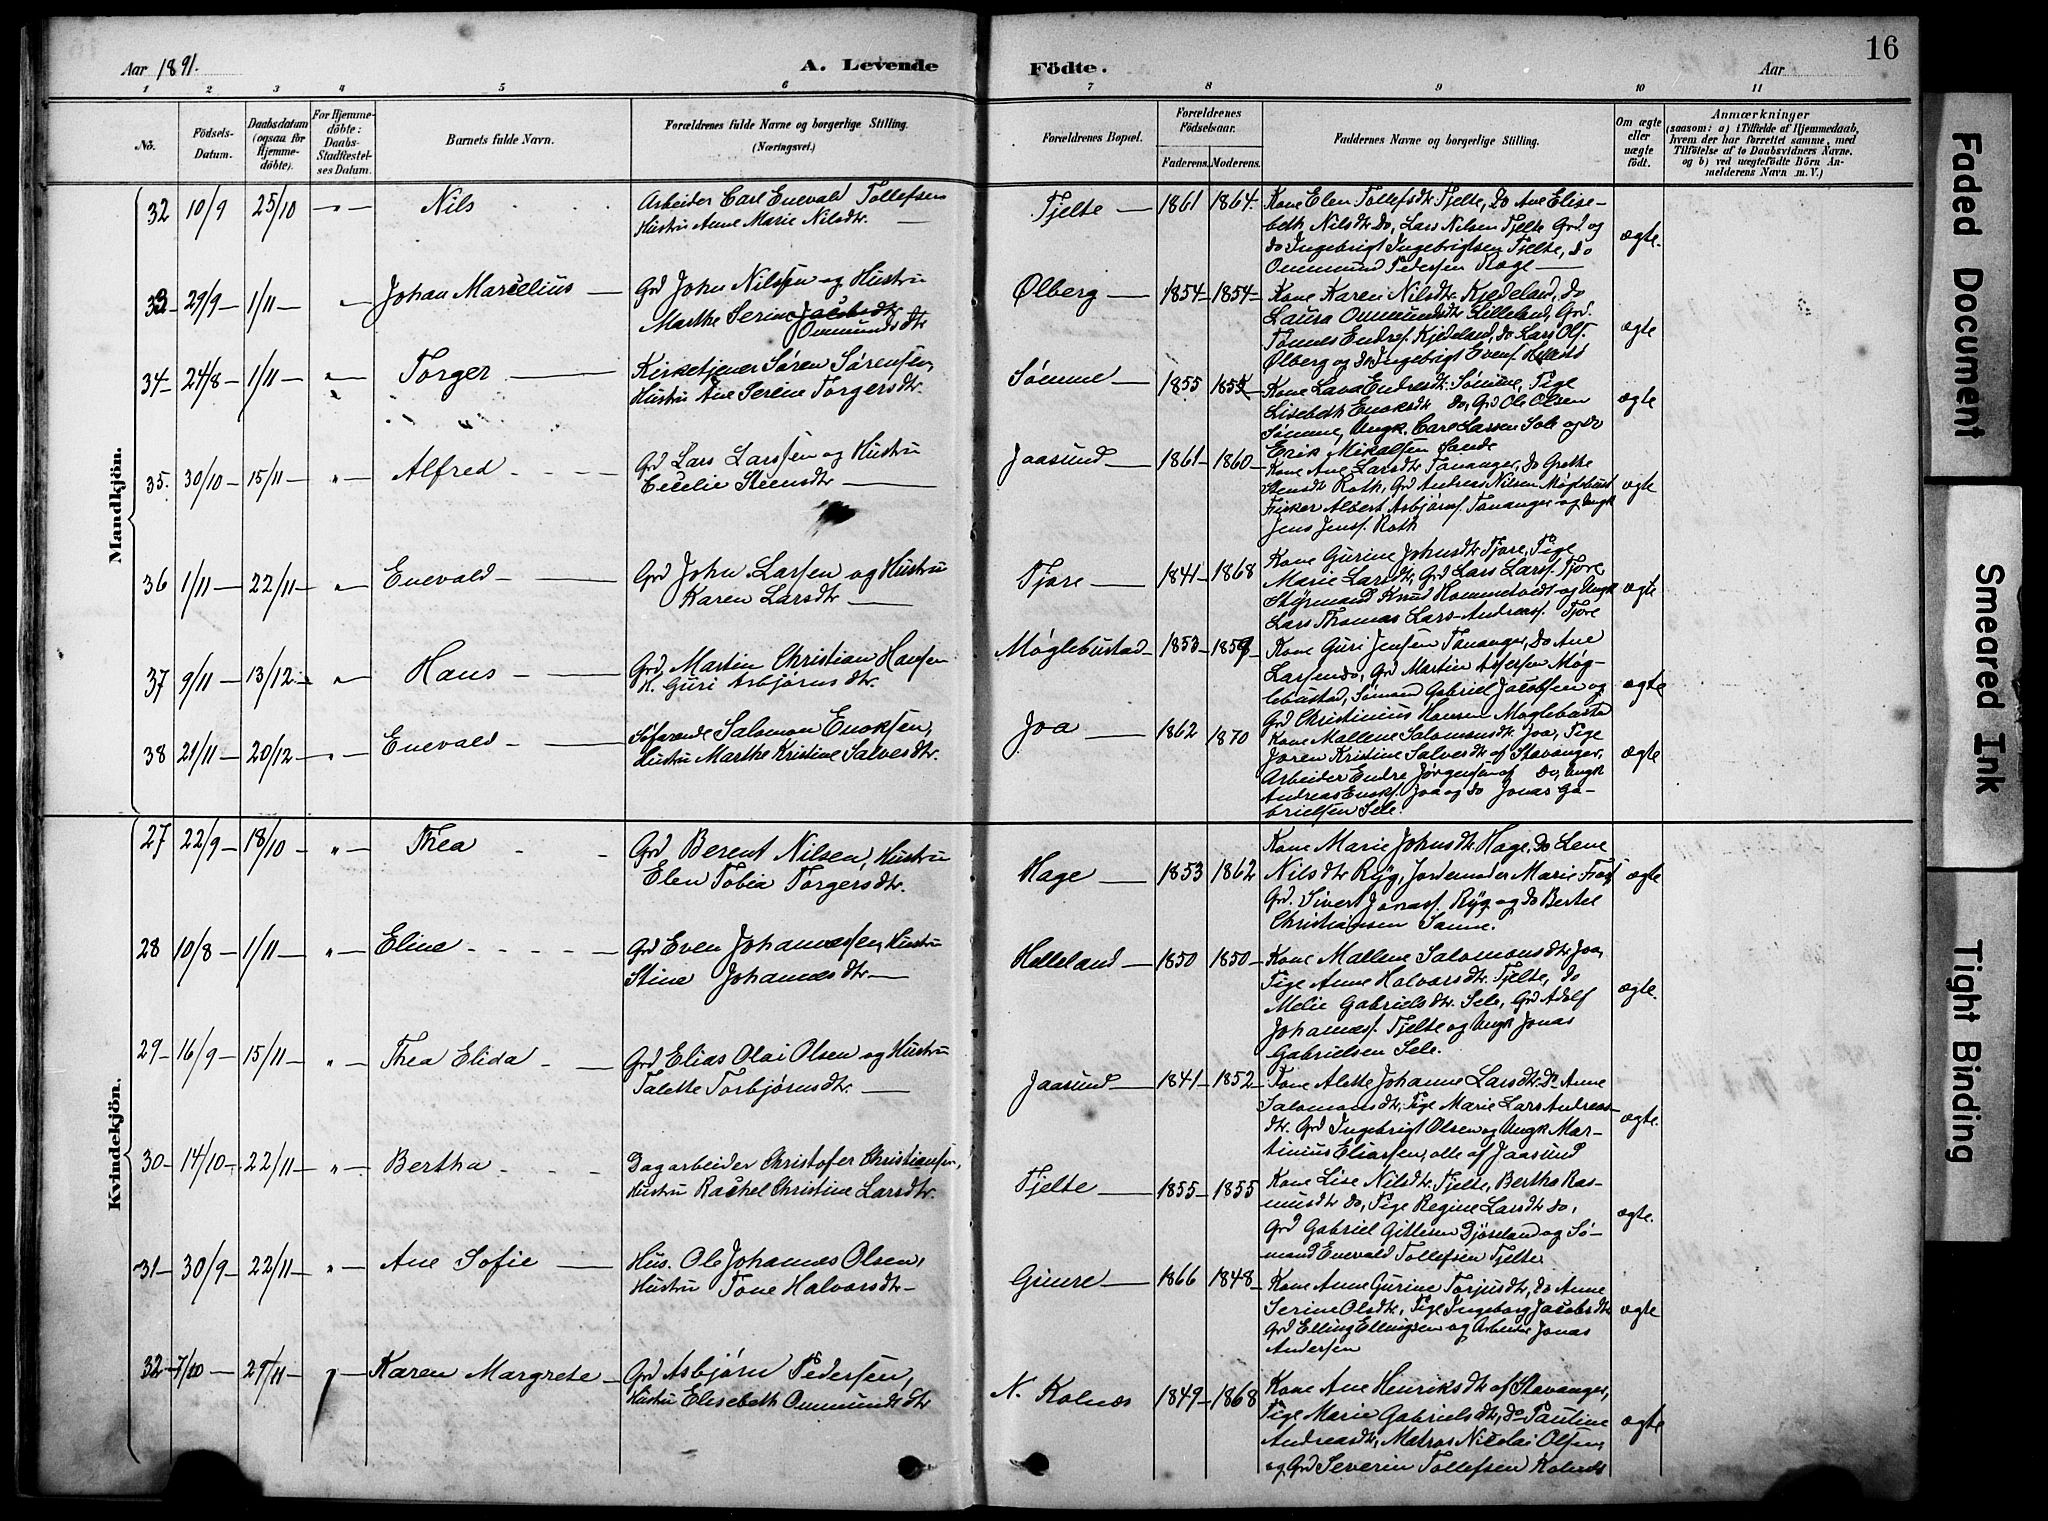 16
Aar 1891.
A. Levende Födte.
Aar
1 2 3 4 5 6 7 8 9 10 11
No.
Födsels-Datum.
Daabsdatum (ogsaa for Hjemmedöbte).
For Hjemmedöbte: Daabs-Stadfæstelses Datum.
Barnets fulde Navn.
Forældrenes fulde Navne og borgerlige Stilling.
(Næringsvei.)
Forældrenes Bopæl.
Forældrenes Födselsaar.
Faderens. Moderens.
Faddernes Navne og borgerlige Stilling.
Om ægte eller uægte födt.
Anmærkninger
(saasom: a) i Tilfælde af Hjemmedaab, hvem der har forrettet samme, med Tilföielse af to Daabsvidners Navne. og b) ved uægtefödte Börn Anmelderens Navn m. V.)
Mandkjön.
32 10/9 25/10 Nils
Arbeider Carl Enevald Tollefsen
Hustru Anne Marie Nilsdtr.
Tjelte 1861 1864
Kone Elen Tollefsdtr Tjelte, Do Ane Elise-
beth Nilsdtr Do, Lars Nilsen Tjelte Grd og
Do Ingebrigt Ingebrigtsen Tjelte, Do
Ommund Pedersen Ræge
ægte.
33 29/9 1/11 Johan Marselius
Grd John Nilssen og Hustru
Marthe Serine Jacobsdtr
Ommundsdtr
Ølberg 1854 1854
Kone Karen Nilsdtr Kjedeland, Do
Laura Ommundsdtr Lilleland, Grd.
Tønnes Endres. Kjedeland, Do Lars Ols.
Ølberg og Do Ingebrigt Evens.
ægte
34 24/8 1/11 Torger
Kirketjener Søren Sørensen,
Hustru Ane Serine Torgersdtr.
Sømme 1855
Kone Lava Endresdtr. Sømme, Pige
Lisebeth Enoksdtr Do, Grd Ole Olsen
Sømme, Ungk. Carl Larsen Sole og Do
Erik Mikalsen Sande
ægte
35. 30/10 15/11 Alfred
Grd Lars Larssen og Hustru
Cecilie Steensdtr
Jaasund 1861 1860
Kone Ane Larsdtr Tananger, Do Grethe
Stensdtr Roth, Grd Andreas Nilsen Møglebust
Fisker Albert Asbjørns. Tananger og Ungk
Jens Jenss. Roth
ægte
36 1/11 22/11 Enevald
Grd John Larsen og Hustru
Karen Larsdtr
Tjore 1841 1868
Kone Gurine Johnsdtr Tjore, Pige
Marie Larsdtr, Grd Lars Larss. Tjore
Styrmand Knud Hommetvedt og Ungk
Lars Thomas Lars-Andreass. Tjore
ægte
37 9/11 13/12 Hans
Grd Martin Christian Hansen
H. Guri Asbjørnsdtr.
Møglebustad 1853 1859
Kone Guri Jensen Tananger, Do Ane
Larsen Do, Grd Martin Assersen Møg-
lebustad, Sømand Gabriel Jacobsen og
Grd Christinius Hansen Møglebustad
ægte
38 21/11 20/12 Enevald
Søfarende Salomon Enoksen,
Hustru Marthe Kristine Salvesdtr.
Joa 1862 1870
Kone Mallene Salomonsdtr Joa, Pige
Joren Kristine Salvesdtr af Stavanger,
Arbeider Endre Jørgensen af Do, Ungk
Andreas Enoks. Joa og Do Jonas Ga-
brielsen Sele.
ægte
Kvindekjön.
27 22/9 18/10 Thea
Grd Berent Nilsen, Hustru
Elen Tobia Torgersdtr.
Hage 1853 1862
Kone Marie Johnsdtr. Hage, Do Lene
Nilsdtr Ryg, Jordemoder Marie
Grd. Sivert Jonass. Ryg og Do Bertel
Christiansen Sanne.
ægte
28 10/8 1/11 Eline
Grd Even Johannessen, Hustru
Stine Johannesdtr
Helleland 1850 1850
Kone Mallene Salomonsdtr. Joa,
Pige Anne Halvorsdtr. Tjelte, Do
Melie Gabrielsdtr. Sele, Grd Adolf
Johanness. Tjelte og Ungk Jonas
Gabrielsen Sele.
ægte.
29 16/9 15/11 Thea Elida
Grd Elias Olai Olsen og Hustru
Talette Torbjørnsdtr.
Jaasund 1841 1852
Kone Alette Johanne Larsdtr. Do Anne
Salomonsdtr. Pige Marie Lars Andreas-
dtr. Grd Ingebrigt Olsen og Ungk Mar-
tinius Eliassen, alle af Jaasund
ægte.
30 14/10 22/11 Bertha
Dagarbeider Christofer Christiansen,
Hustru Rachel Christine Larsdtr.
Tjelte 1855 1855
Kone Lise Nilsdtr. Tjelte, Bertha Ras-
musdtr Do, Pige Regine Larsdtr Do,
Grd Gabriel Gitlesen Djøseland og Sø-
mand Enevald Tollefsen Tjelte
ægte.
31 30/9 22/11 Ane Sofie
Hus. Ole Johannes Olsen,
Hustru Tone Halvorsdtr
Gimre 1866 1848
Kone Anne Gurine Torjusdtr, Do Anne
Serine Olsdtr, Pige Ingeborg Jacobsdtr
Grd Elling Ellingsen og Arbeider Jonas
Andersen
ægte
32 7/10 29/11 Karen Margrete
Grd Asbjørn Pedersen,
Hustru Elisebeth Ommundsdtr
N. Kolnes 1849 1868
Kone Ane Henriksdtr af Stavanger,
Pige Marie Gabrielsdtr, Do Pauline
Andreasdtr, Matros Nicolai Olsen,
og Grd Severin Tollefsen Kolnes
ægte
Faded Document
Smeared Ink
Tight Binding